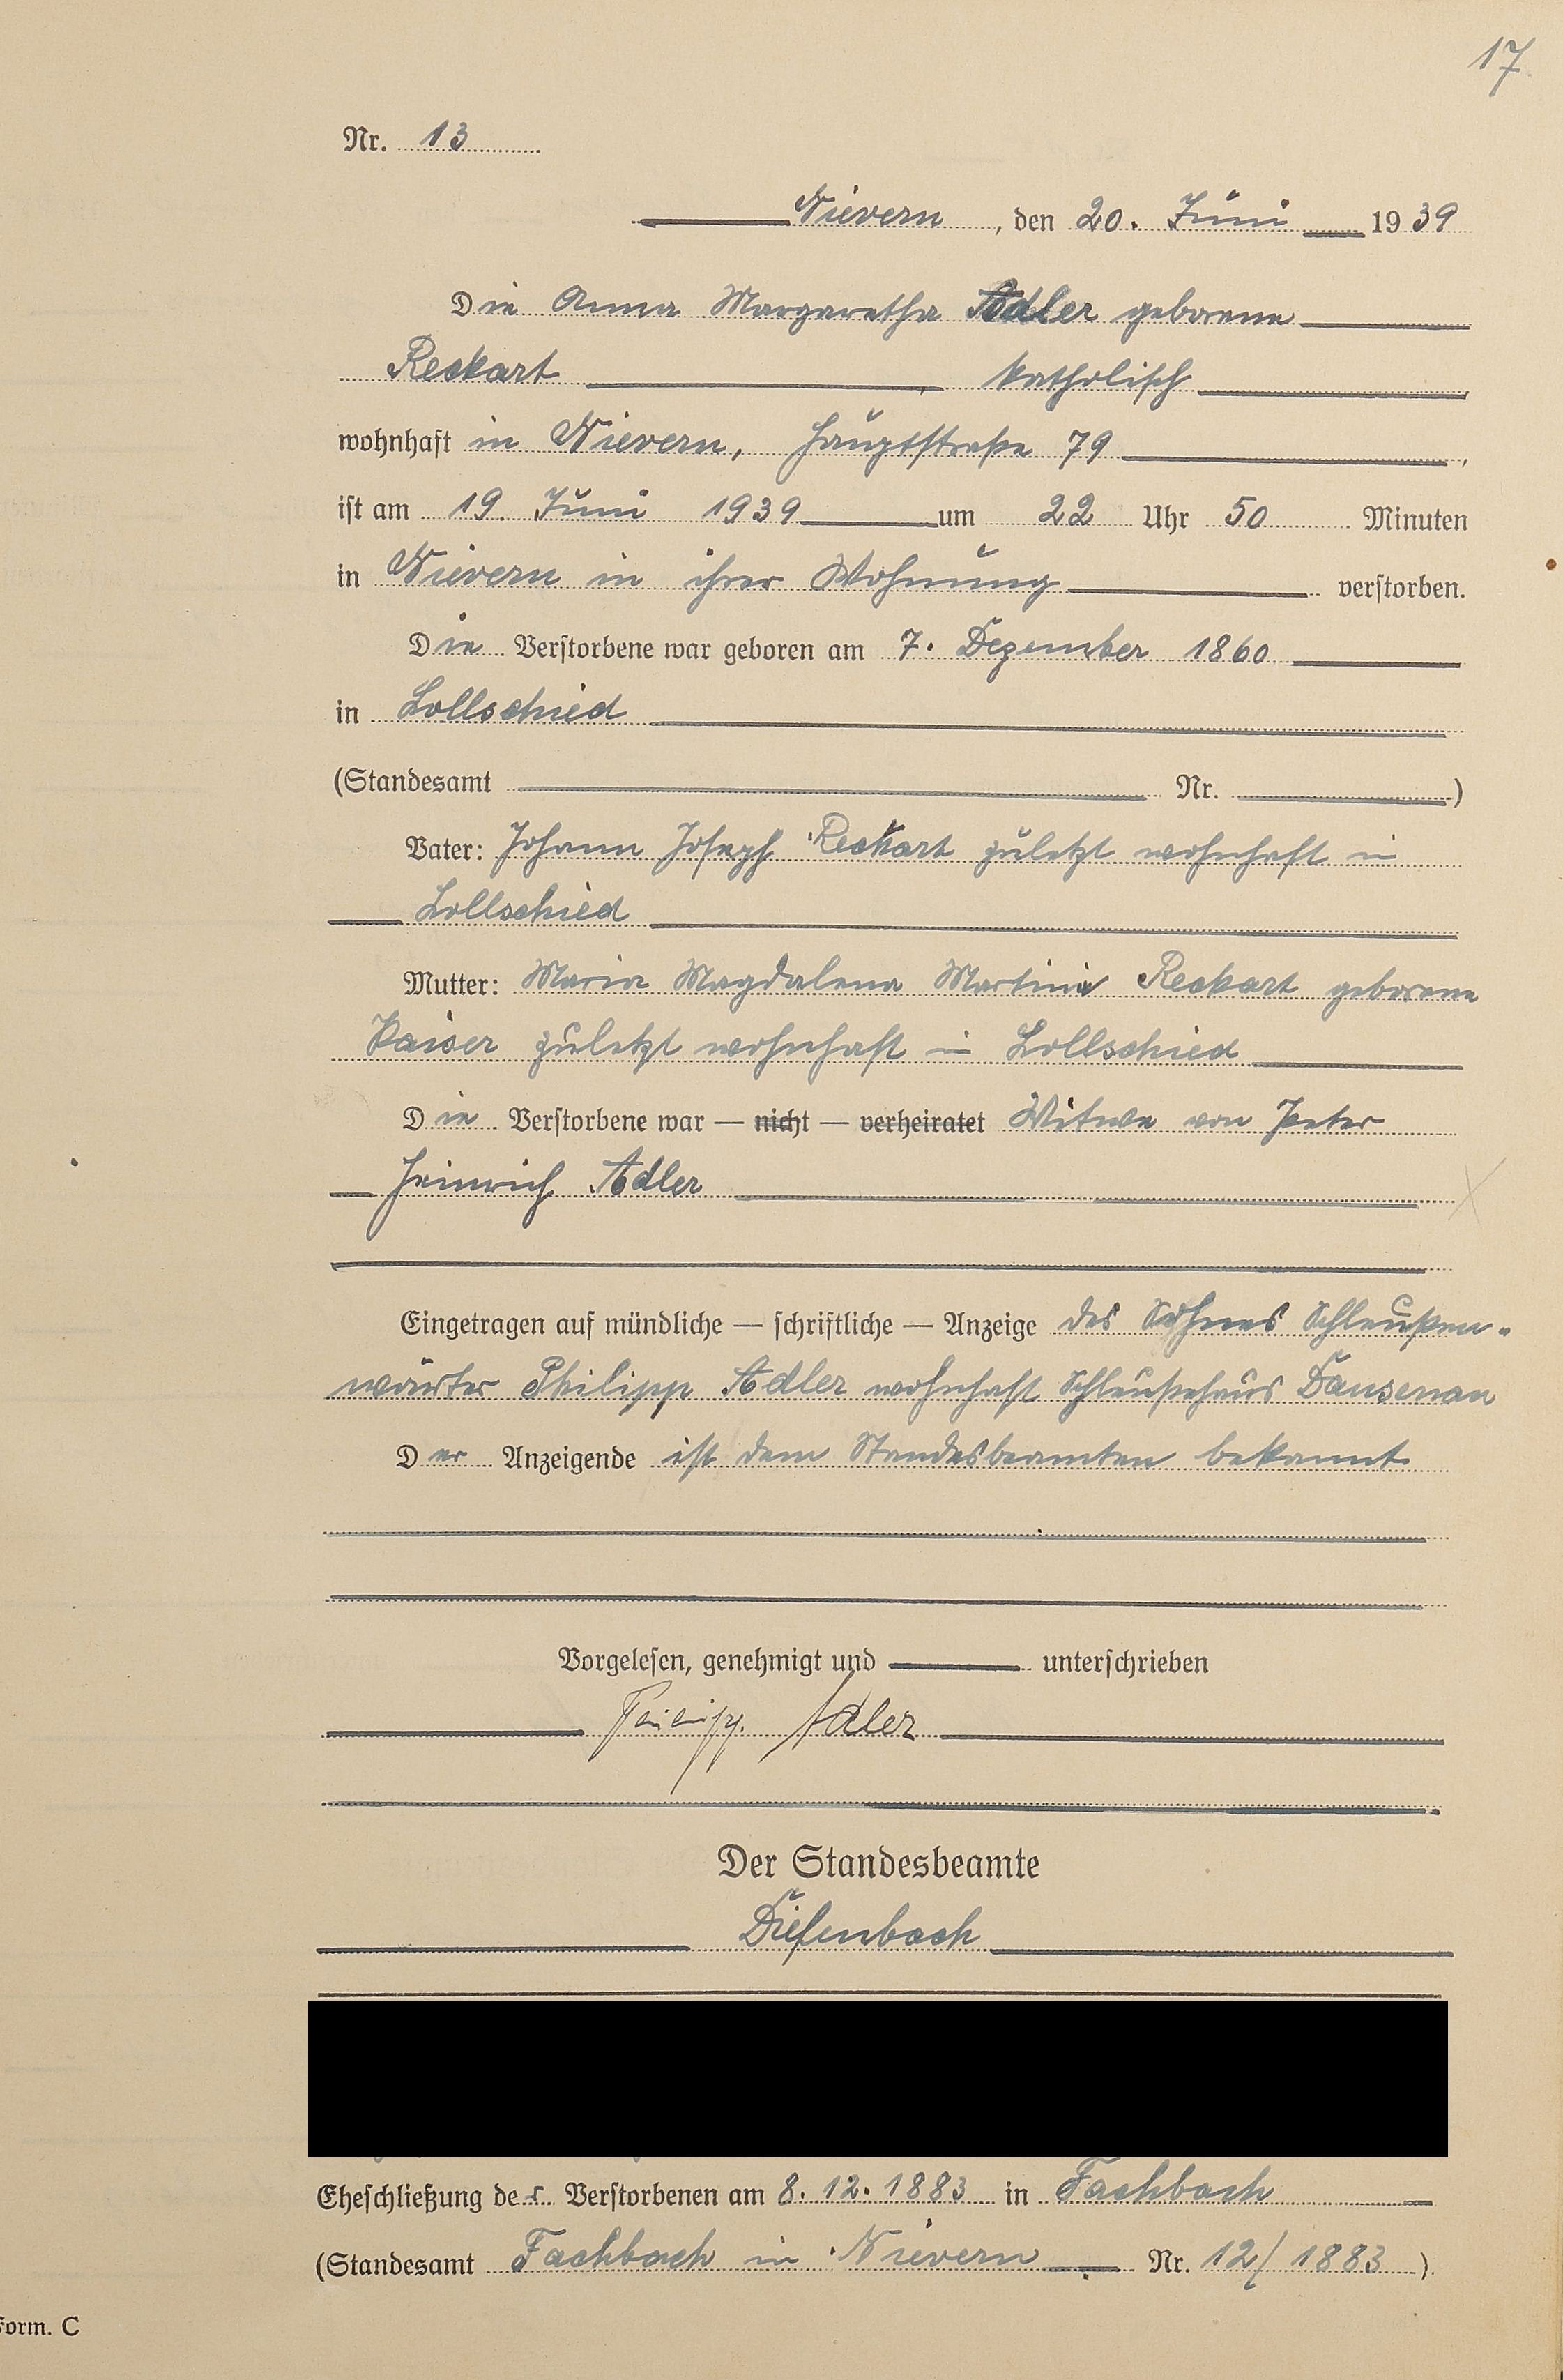 17
Nr. 13
Nievern, den 20. Juni 1939
Die Anna Margaretha Adler geborene
Reckart katholisch
wohnhaft in Nievern, Hauptstraße 79,
ist am 19. Juni 1939 um 22 Uhr 50 Minuten
in Nievern in ihrer Wohnung verstorben.
Die Verstorbene war geboren am 7. Dezember 1860
in Lollschied
(Standesamt Nr. )
Vater: Johann Joseph Reckart zuletzt wohnhaft in
Lollschied
Mutter: Maria Magdalena Martina Reckart geborene
Kaiser zuletzt wohnhaft in Lollschied
Die Verstorbene war — nicht — verheiratet Witwe von Peter
Heinrich Adler
Eingetragen auf mündliche — schriftliche — Anzeige des Sohnes Schleußen-
wärter Philipp Adler wohnhaft Schleußehaus Dausenau
Der Anzeigende ist dem Standesbeamten bekannt
Vorgelesen, genehmigt und unterschrieben
Philipp. Adler
Der Standesbeamte
Diefenbach
Eheschließung der Verstorbenen am 8. 12. 1883 in Fachbach
(Standesamt Fachbach in Nievern Nr. 12/1883)
Form. C